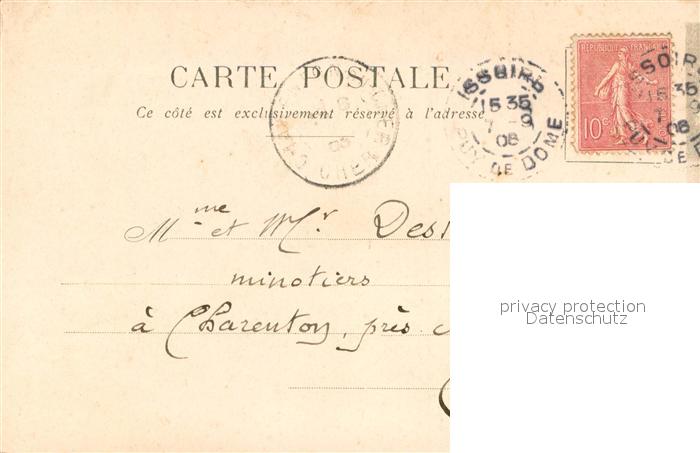 CARTE POSTALE
Ce côté est exclusivement réservé à l'adresse
REPUBLIQUE FRANÇAISE
10c
ISSOIRE
15 35
7 - 9
08
PUY DE DOME
SOIR
15 35
7
08
DE
Mme et Mr. Des
minotiers
à Charenton, près
privacy protection
Datenschutz